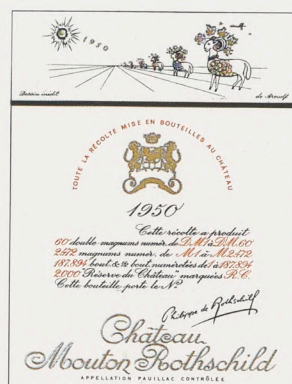 1950
Dessin inédit de Arnulf
TOUTE LA RÉCOLTE MISE EN BOUTEILLES AU CHÂTEAU
1950
Cette récolte a produit
60 double magnums numér. de D.M.1 à D.M.60
2472 magnums numér. de M.1 à M.2472
187.894 bout. & ½ bout. numérotées de 1 à 187.894
2000 "Réserve du Château" marquées R.C.
Cette bouteille porte le N°
Philippe de Rothschild
Château
Mouton Rothschild
APPELLATION PAUILLAC CONTRÔLÉE